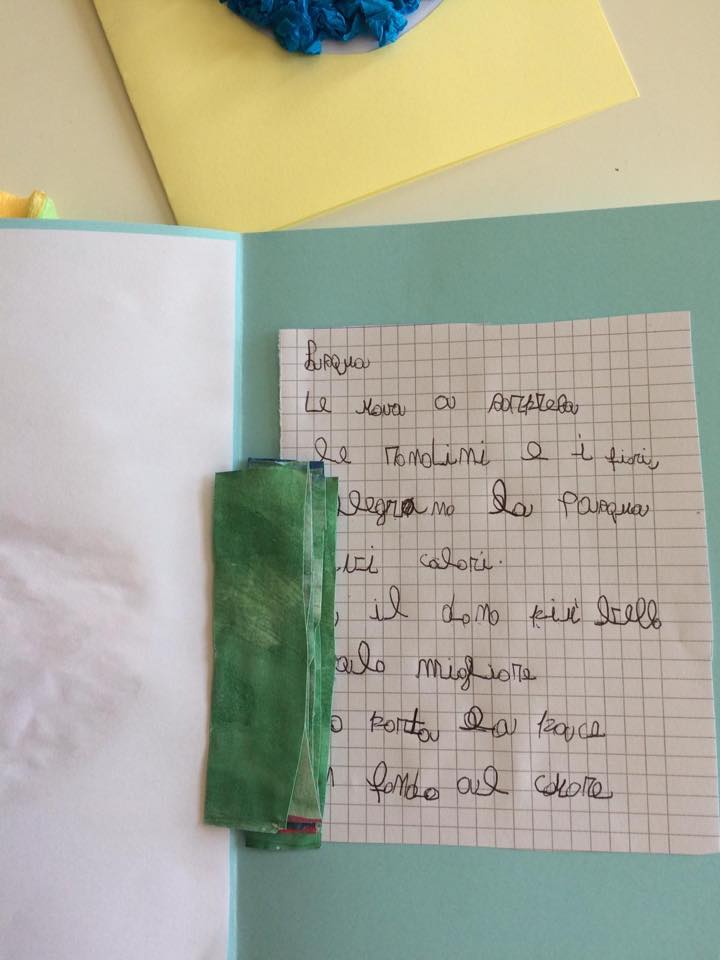 Pasqua
Le uova a sorpresa
le rondini e i fiori,
llegrano la Pasqua
tti calori.
, il dono più bello
alo migliore
o porta la pace
n fondo al cuore